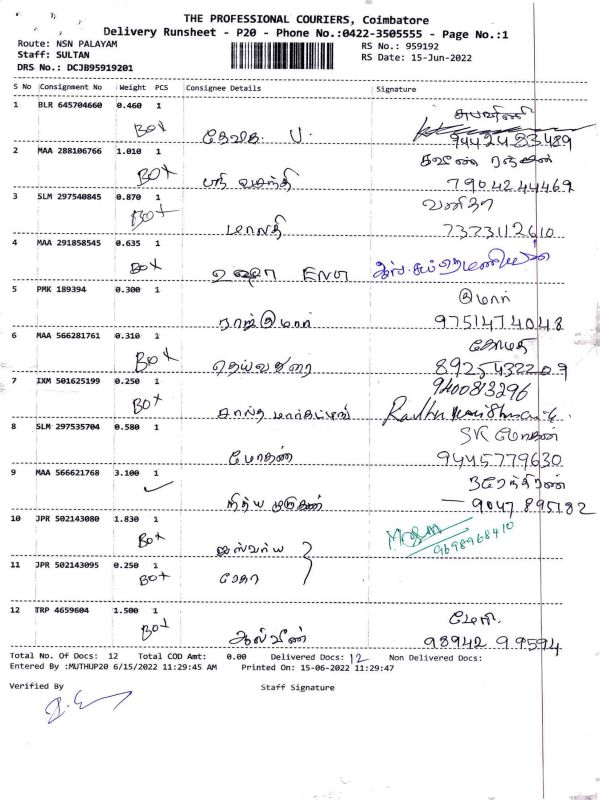 THE PROFESSIONAL COURIERS, Coimbatore
Delivery Runsheet - P20 - Phone No.:0422-3505555 - Page No.:1
Route: NSN PALAYAM
Staff: SULTAN
DRS No.: DCJB95919201
RS No.: 959192
RS Date: 15-Jun-2022
S No Consignment No Weight PCS Consignee Details Signature
1 BLR 645704660 0.460 1
BOX
9442483489
2 MAA 288106766 1.010 1
BOX
7904244469
3 SLM 297540845 0.870 1 வனிதா
BOX
மாலதி 7373112610
4 MAA 291858545 0.635 1
BOX
உஷா ENT
5 PMK 189394 0.300 1 குமார்
ராஜ்குமார் 9751474048
6 MAA 566281761 0.310 1 கோமதி
BOX
தெய்வதுரை 8925432209
7 IXM 501625199 0.250 1 9400813296
BOX
8 SLM 297535704 0.580 1 SK மோகன்
மோகன் 9445779630
9 MAA 566621768 3.100 1
நித்ய முருகன் - 9047895182
10 JPR 502143080 1.830 1
BOX
ஐஸ்வர்ய 9698968410
11 JPR 502143095 0.250 1
BOX
12 TRP 4659604 1.500 1
BOX
ஆல்வின் 98942 99594
Total No. Of Docs: 12 Total COD Amt: 0.00 Delivered Docs: 12 Non Delivered Docs:
Entered By :MUTHUP20 6/15/2022 11:29:45 AM Printed On: 15-06-2022 11:29:47
Verified By Staff Signature